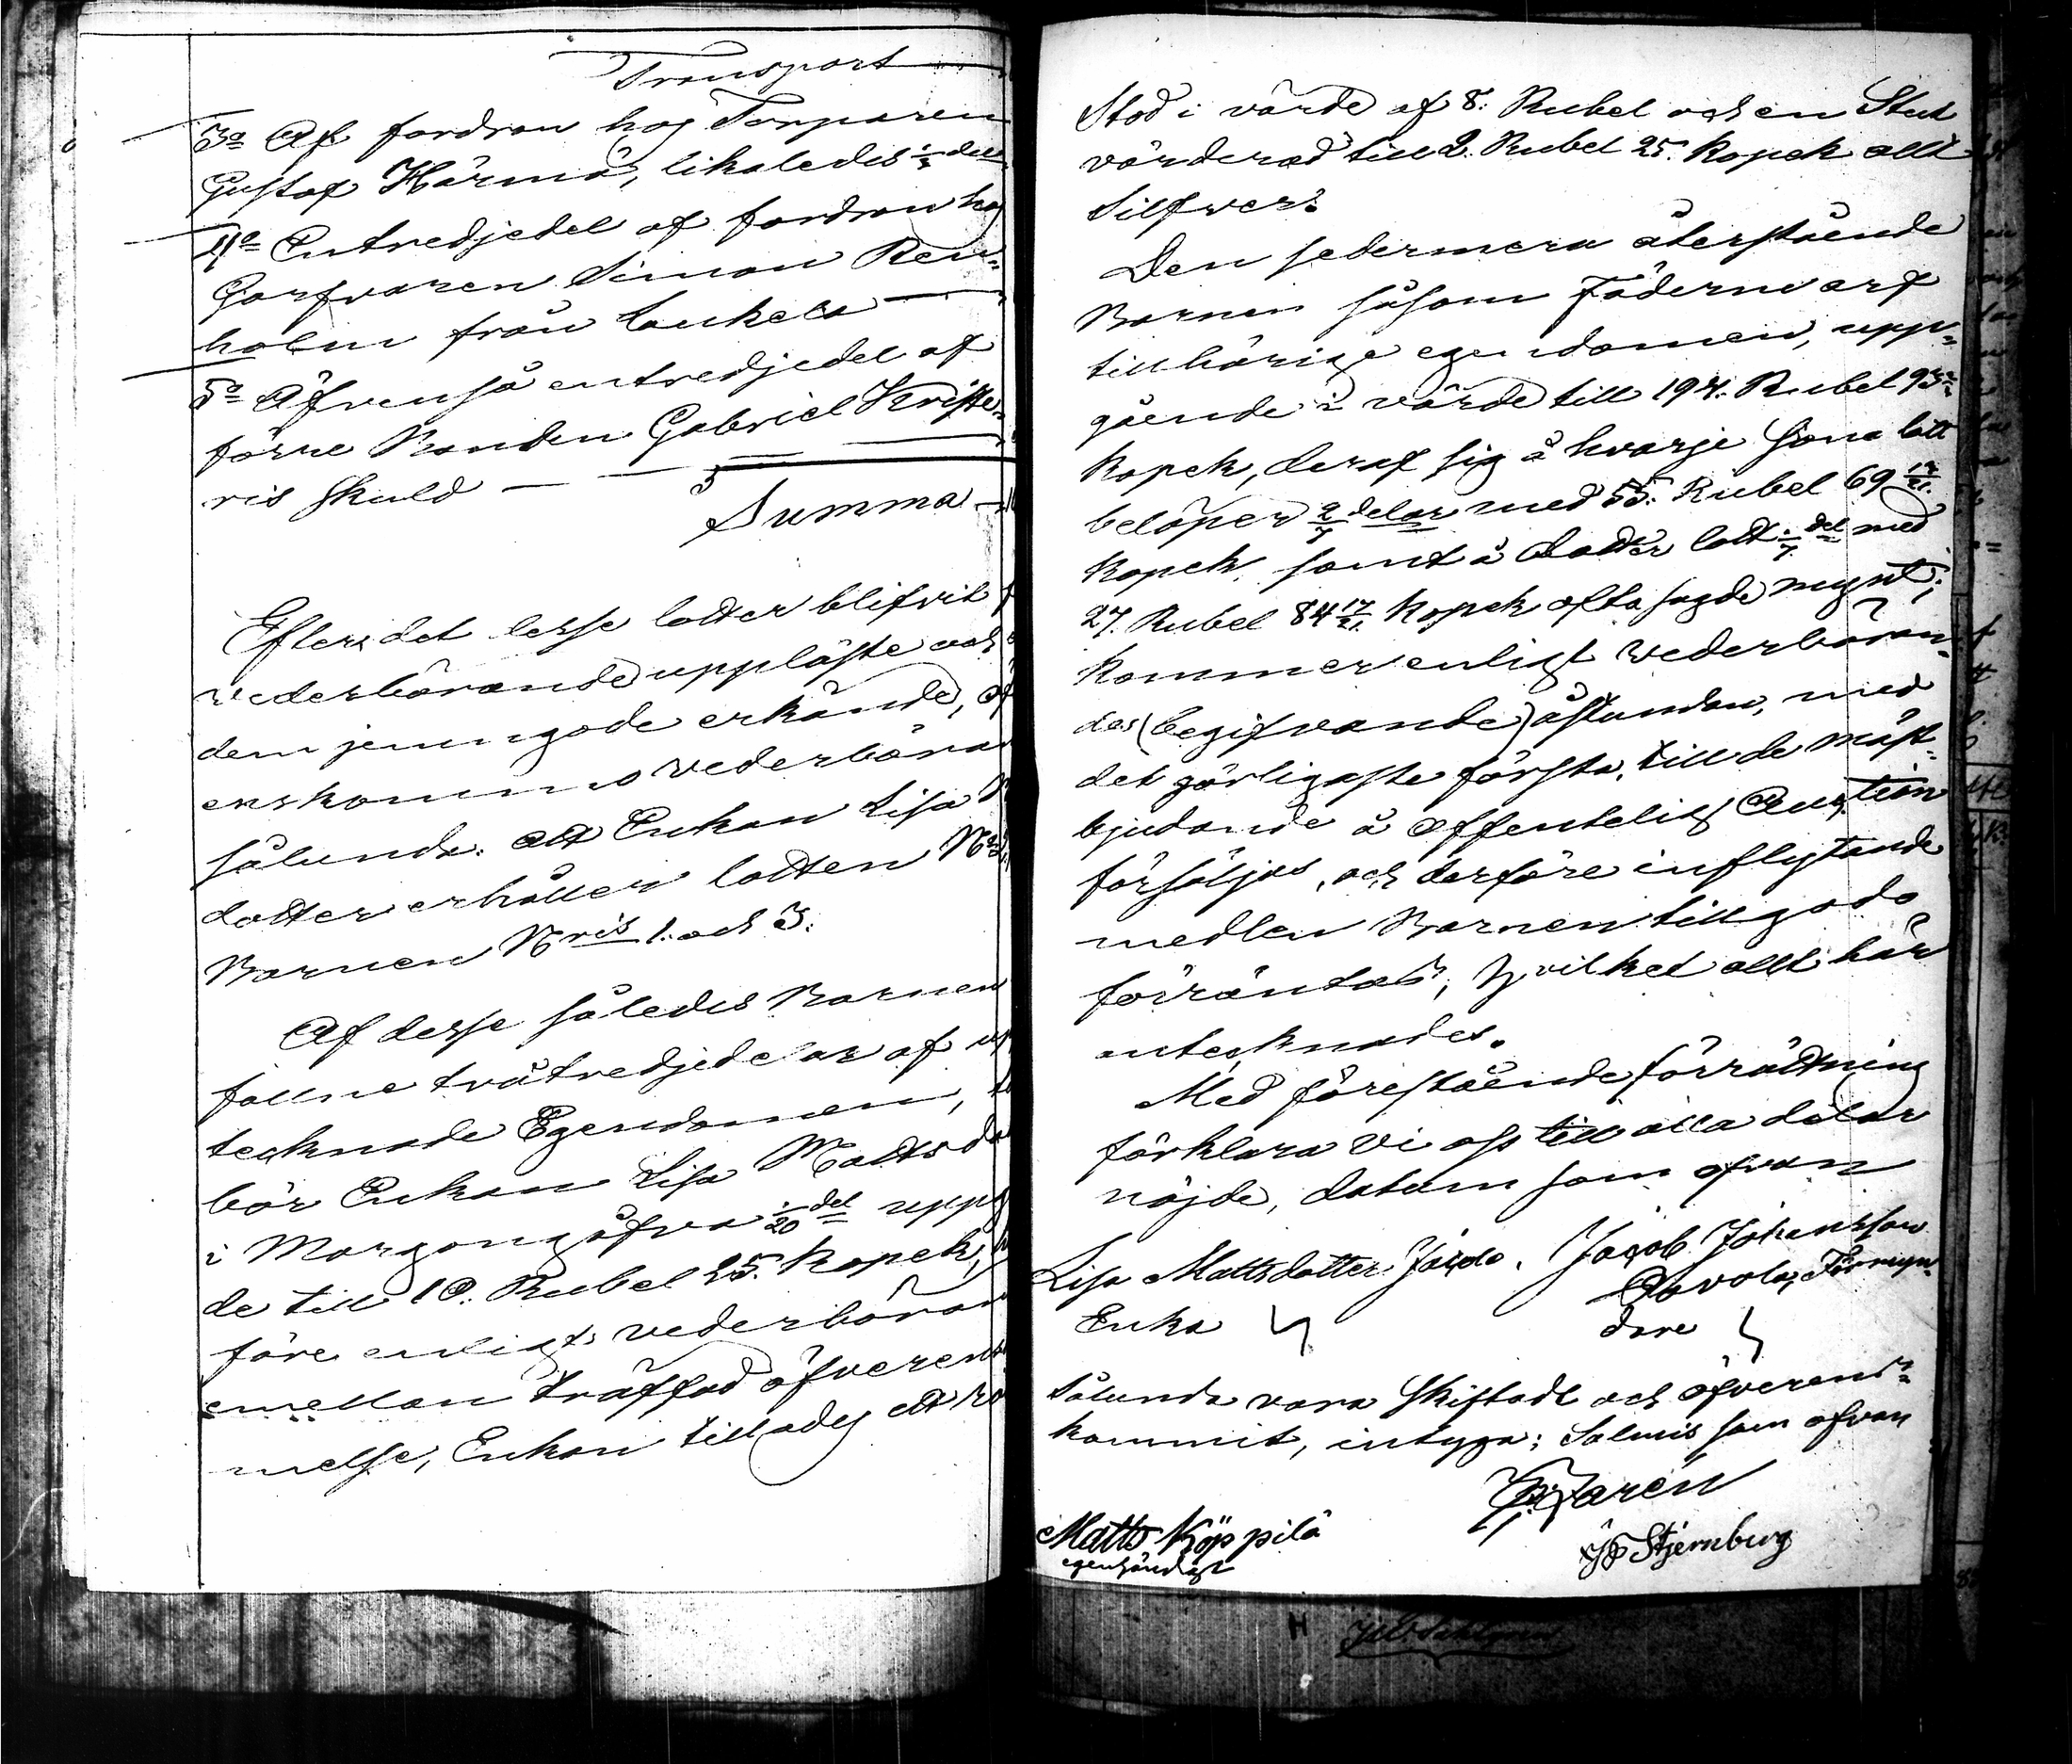 Transport
3o Af fordran hos Torparen
Gustaf Härmä, likaledes 1/3 del
4o Entredjedel af fordran hos
Garfvaren Simon Ren=
holm från Laukela
5o Äfvenså entredjedel af
förre Bonden Gabriel Kriste=
ris skuld
Summa
Efter det desse lotter blifvit
vederbörande uppläste och
dem jemngode erkände, öf
verskommo vederböran
sålunda, att Enkan Lisa
dotter erhåller lotten No 2
Barnen Nris 1. och 3.
Af desse således Barnen
fallne tvåtredjedelar af up
tecknade Egendomen,
bör Enkan Lisa Mattsdo
i Morgongåfva 1/20 del uppg
de till 10. Rubel 25. kopek,
före enligt vederböran
emellan träffad öfverens
melse, Enkan tillades ett
Stod i värde af 8. Rubel och en Stut
värderad till 2. Rubel 25. kopek allt
Silfver.
Den sedermera återstående
Barnen såsom Fädernearf
tillhörige egendomen, upp=
gående i värde till 194. Rubel 93
kopek, deraf sig å hvarje Sons lott
belöper 2/7 delar med 55. Rubel 69 13/21
kopek, samt å dotter lott 1/7 del med
27. Rubel 84 17/21 kopek oftasagde mynt;
kommer enligt vederböran=
des (begifvande) åstundan, med
det görligaste första, till de mäst=
bjudande å Offentelig Auction
försäljas, och derföre inflytande
medlen Barnen tillgodo
förräntas; hvilket allt här
antecknades.
Med förestående förrättning
förklara vi oss till alla delar
nöjde, datum som ofvan
Lisa Mattsdotter Järde. Jacob Johansson
Enka
Förmyn=
dare
Sålunda vara skiftadt och öfverens=
kommit, intyga; Salmis som ofvan
Matts Köppilä
egenhändigt
Stjernburg